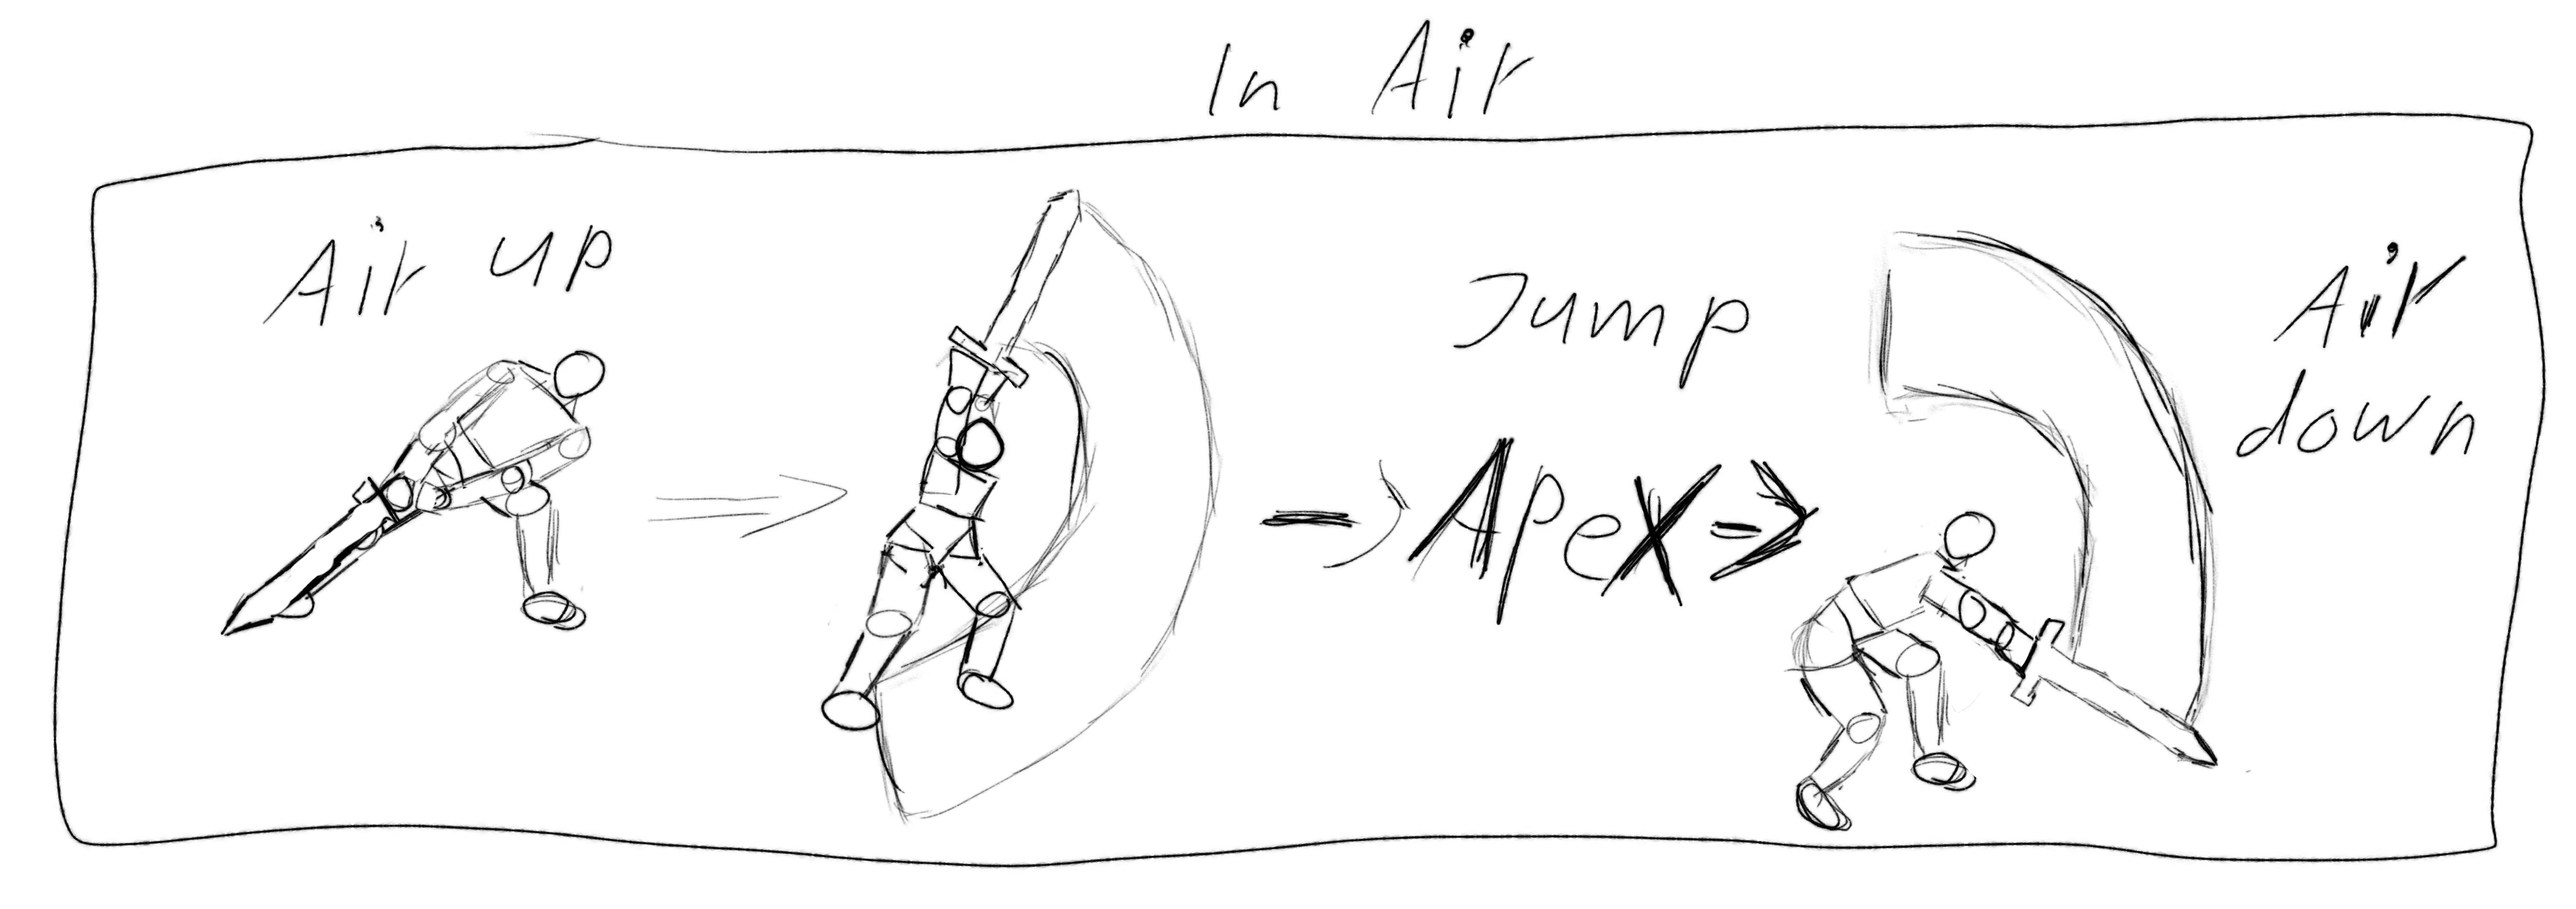 In Air
Air up
Jump
Apex
Air
down